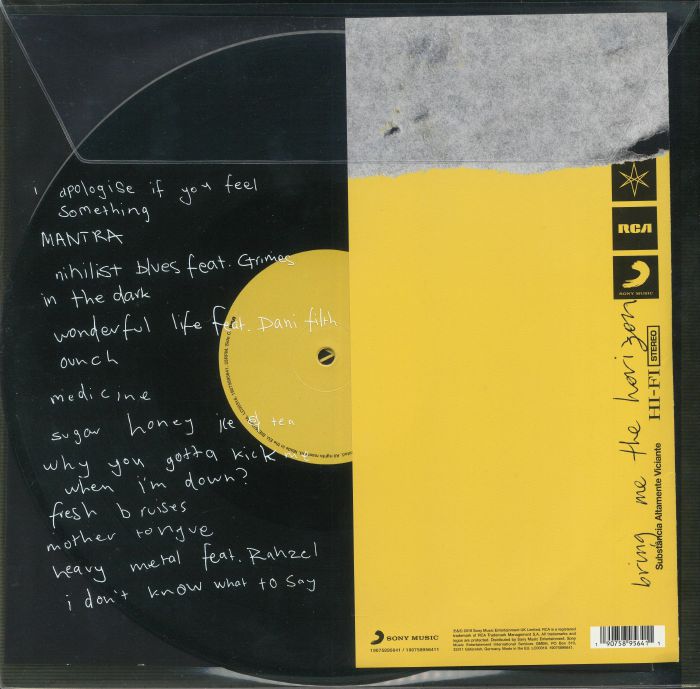 i apologise if you feel
something
MANTRA
nihilist blues feat. Grimes
in the dark
wonderful life feat. Dani filth
ouch
medicine
sugar honey ice & tea
why you gotta kick me
when i'm down?
fresh bruises
mother tongue
heavy metal feat. Rahzel
i don't know what to say
RCA
SONY MUSIC
bring me the horizon
HI-FI STEREO
Substância Altamente Viciante
SONY MUSIC
19075895641 / 190758956411
Entertainment UK Limited. RCA is a registered
trademark of RCA Trademark Management S.A. All trademarks and
logos are protected. Distributed by Sony Music Entertainment. Sony
Music Entertainment International Services GMBH, PO Box 510,
33311 Gütersloh, Germany. Made in the EU.
1 90758 95641 1